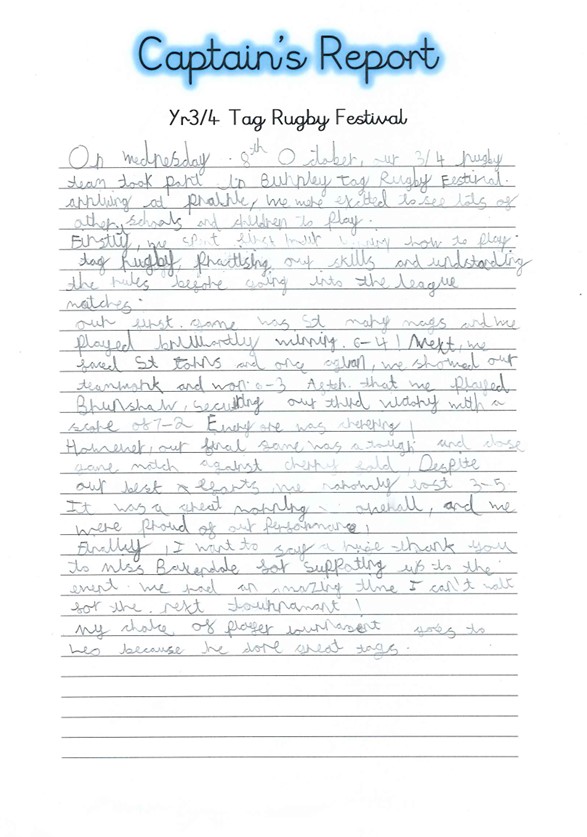 Captain's Report
Yr3/4 Tag Rugby Festival
On wednesday 8th October, our 3/4 rugby
team took part in Burnley Tag Rugby Festival.
at we were excited to see lots of
other schools and children to play.
Firstly, we spent first how to play
tag Rugby practising our skills and undstanding
the rules before going into the league
matches.
our first game was St mary mags and we
played brilliantly winning 6-4! Next, we
faced St Johns and once again, we showed our
teamwork and won 6-3 that we played
Brunshaw, securing our third victory with a
score of 7-2 Every one was cheering!
However, our final game was a tough and close
game match against cherry fold, Despite
our best we lost 3-5.
It was a great morning overall, and we
were proud of our performance!
Finally, I want to say a huge thank you
to miss Baxendale for supporting us to the
event. we had an amazing time I can't wait
for the next
my choice of player goes to
Leo because he done great tags.